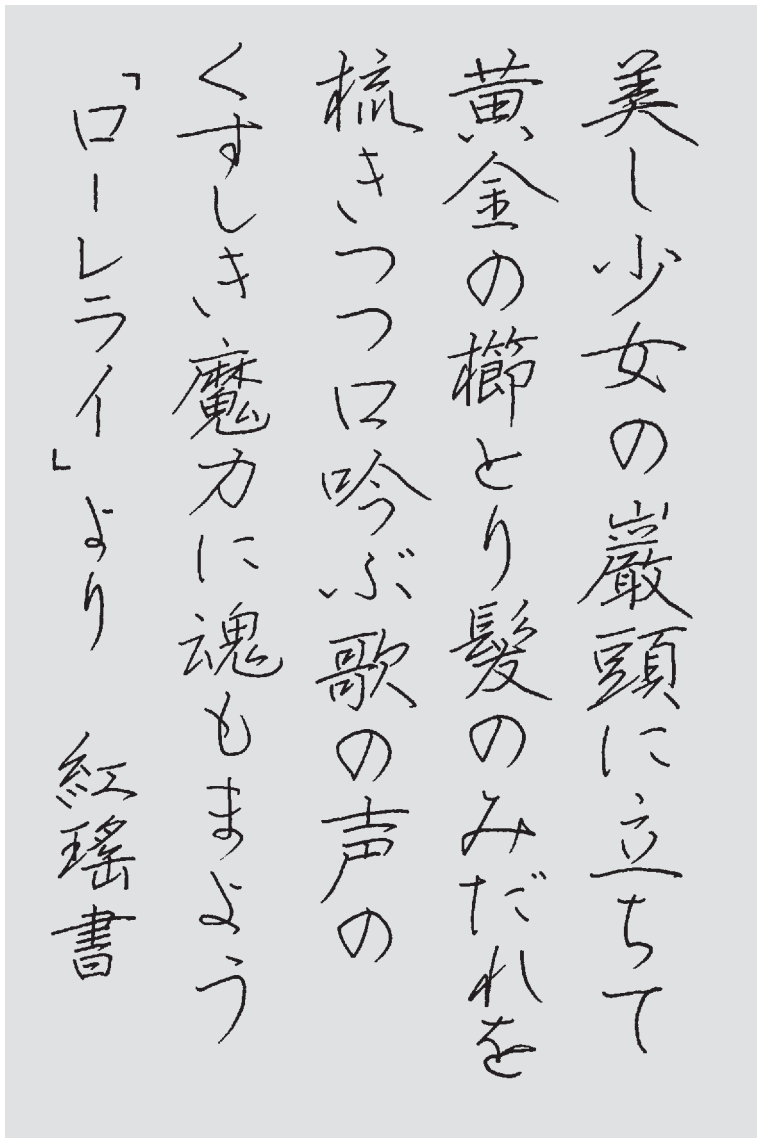 美し少女の巖頭に立ちて
黄金の櫛とり髪のみだれを
梳きつつ口吟ぶ歌の声の
くすしき魔力に魂もまよう
「ローレライ」より 紅瑤書